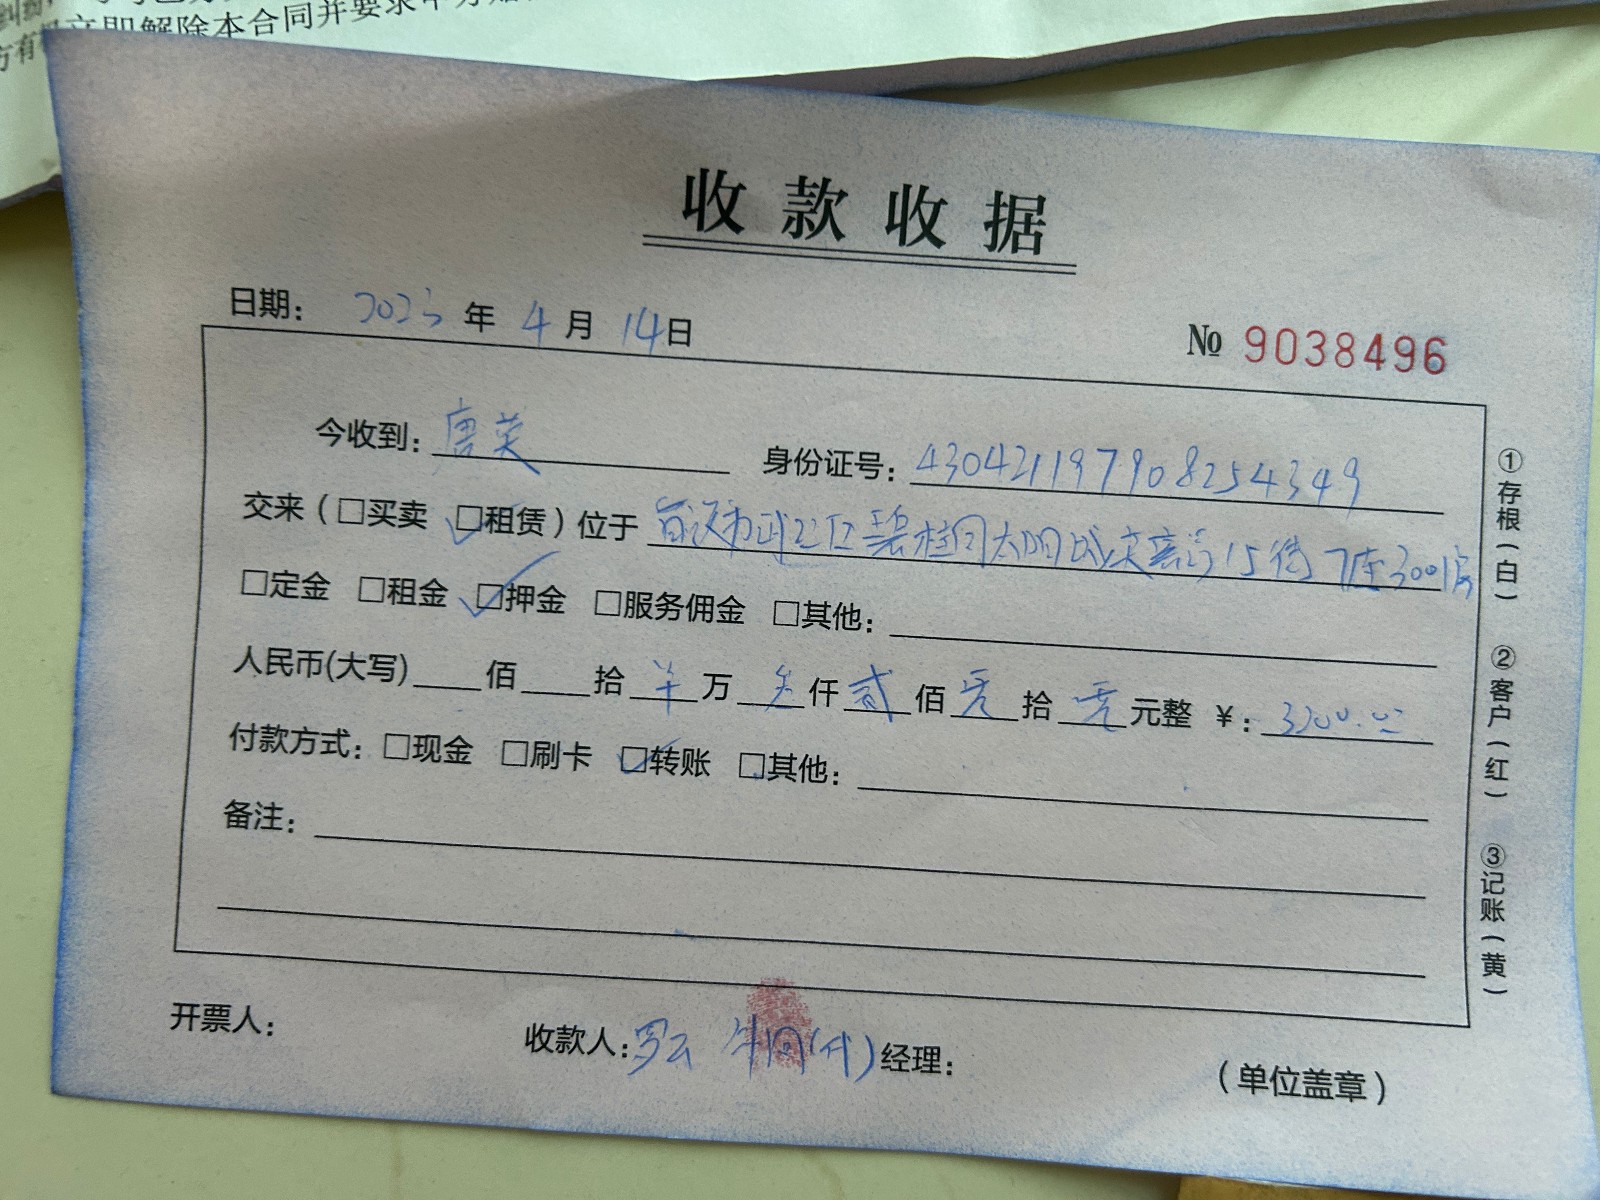 立即解除本合同并要求
收款收据
日期： 2023 年 4 月 14 日
№ 9038496
今收到：唐英 身份证号：430421197908254349
交来（□买卖 ☑租赁）位于 武 区碧桂园太阳城 15街7座3001房
□定金 □租金 ☑押金 □服务佣金 □其他：
人民币(大写) 佰 拾 羊 万 叁 仟 贰 佰 零 拾 零 元整 ￥：3200.00
付款方式：□现金 □刷卡 ☑转账 □其他：
备注：
开票人： 收款人：罗云 (代) 经理： （单位盖章）
①存根（白） ②客户（红） ③记账（黄）